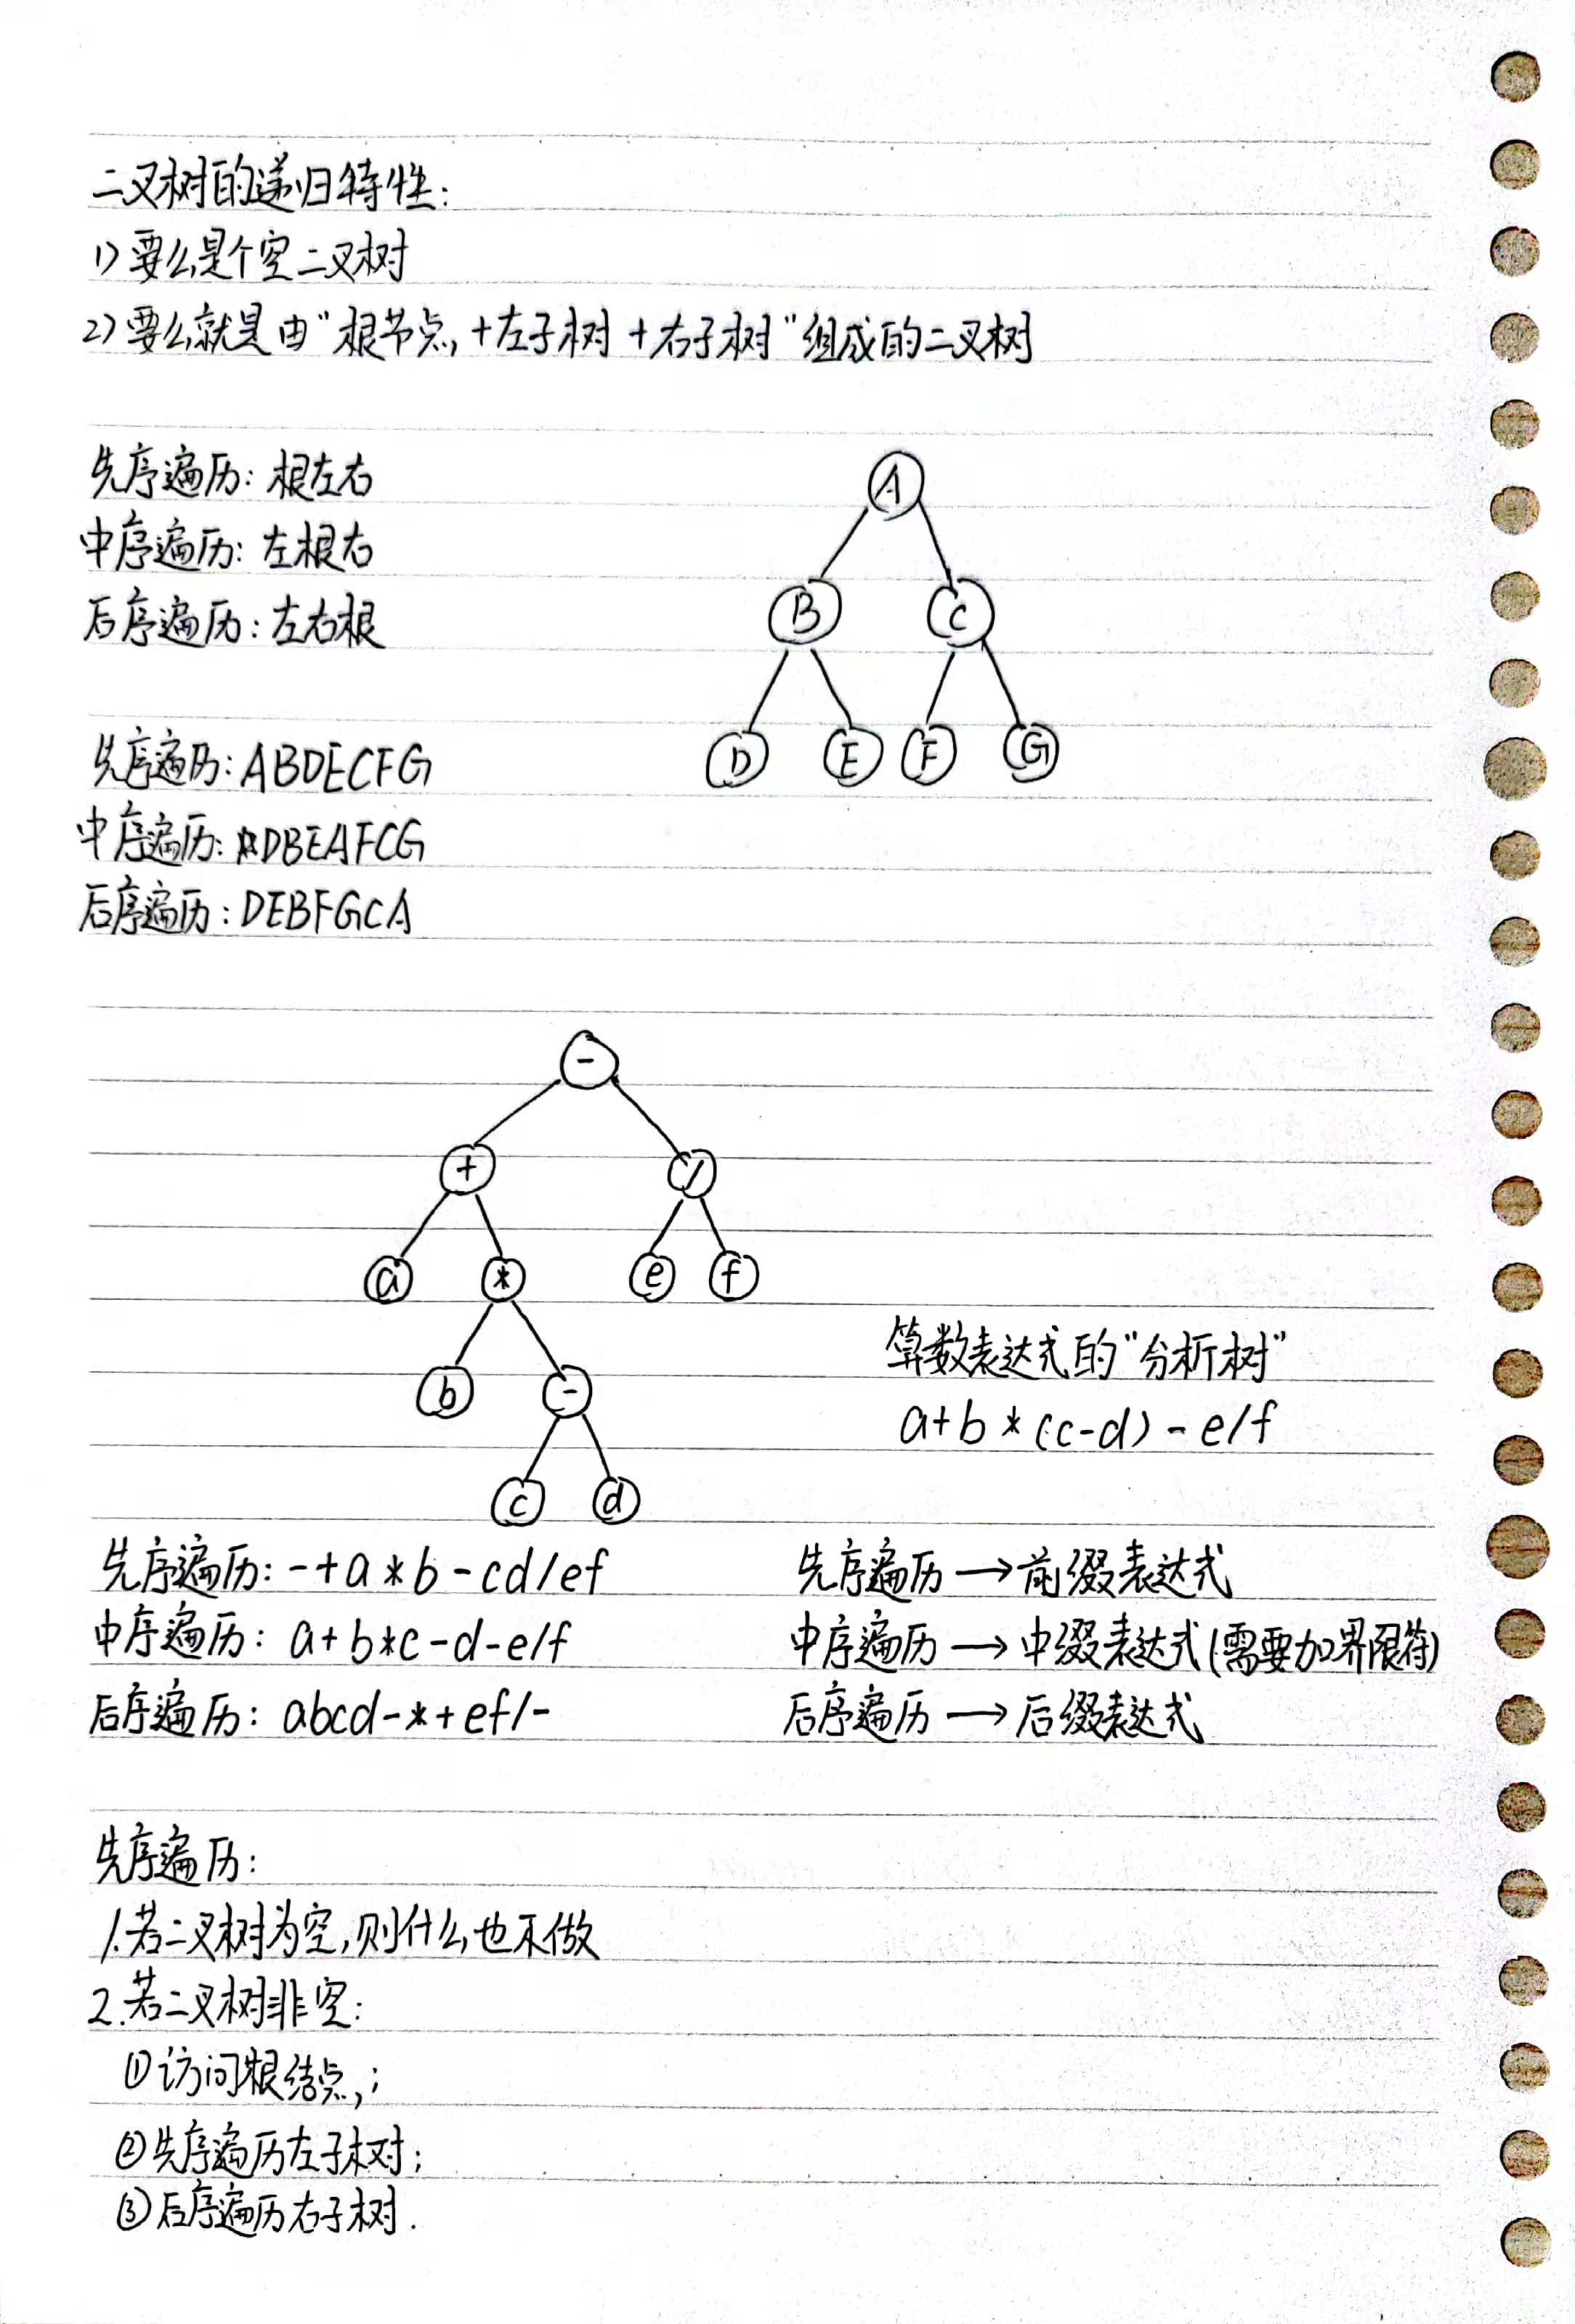 二叉树的递归特性:
1) 要么是个空二叉树
2) 要么就是由"根节点+左子树+右子树"组成的二叉树
先序遍历: 根左右
中序遍历: 左根右
后序遍历: 左右根
A
B C
D E F G
先序遍历: ABDECFG
中序遍历: DBEAFCG
后序遍历: DEBFGCA
-
+ /
a * e f
b -
c d
算数表达式的"分析树"
a+b*(c-d)-e/f
先序遍历: -+a*b-cd/ef
中序遍历: a+b*c-d-e/f
后序遍历: abcd-*+ef/-
先序遍历→前缀表达式
中序遍历→中缀表达式(需要加界限符)
后序遍历→后缀表达式
先序遍历:
1.若二叉树为空,则什么也不做
2.若二叉树非空:
①访问根结点;
②先序遍历左子树;
③后序遍历右子树.